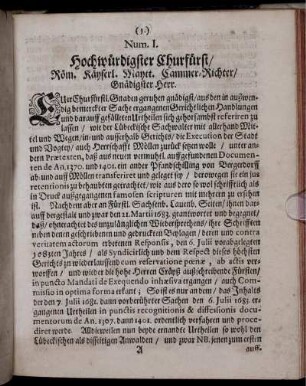 (1)
Num. I.
Hochwürdigster Churfürst/
Röm. Käyserl. Mayet. Cammer-Richter/
Gnädigster Herr.
EUer Churfürstl. Gnaden geruhen gnädigst/ aus den in außwen-
dig bemerckter Sache ergangenen Gerichtlichen Handlungen
und darauff gefälleten Urtheilen sich gehorsambst referiren zu
lassen/ wie der Lübeckische Sachwolter mit allerhand Mit-
tel und Wegen/ in und ausserhalb Gerichts/ die Execution der Stadt
und Vogtey/ auch Herrschafft Möllen zurück setzen wolle/ unter an-
dern Prætexten, daß aus neuen vermuhtl. auffgefundenen Documen-
ten de An. 1370. und 1401. ein ander Pfandschilling von Bergedorff
ab- und auff Möllen transferiret und geleget sey/ derowegen sie ein jus
retentionis zu behaubten getrachtet/ wie aus dero so wol schrifftlich als
in Druck ausgegangenen famosen scripturen mit mehren zu ersehen
ist. Nachdem aber an Fürstl. Sachsenb. Lauenb. Seiten/ ihnen dar-
auff dergestalt und zwar den 21. Martii 1683. geantwortet und begegnet/
daß/ ohnerachtet des unzulänglichen Wiedersprechens/ ihre Schrifften
neben denen geschriebenen und gedruckten Beylagen/ derer und contra
veritatem actorum erbetenen Respensis, den 6. Julii vorabgelegten
1683sten Jahres/ als Syndicirlich und dem Respect dieses höchsten
Gerichts zu wiederlauffend cum reservatione pœnæ, ab actis ver-
worffen/ und wieder die hohe Herren Creyß ausschreibende Fürsten/
in puncto Mandati de Exequendo inhæsiva ergangen/ auch Com-
missio in optima forma erkant; So ist es nur an dem/ das Inhalts
der den 7. Julii 1682. dann vorberührter Sachen den 6. Julii 1683. er-
gangenen Urtheilen in punctis recognitionis & diffessionis docu-
mentorum de An. 1307. dann 1401. ordentlich verfahren und proce-
diret werde. Alldieweilen nun beyde ernandte Urtheilen so wohl den
Lübeckischen als disseitigen Anwalden/ und zwar NB. jenen zum ersten
A auff